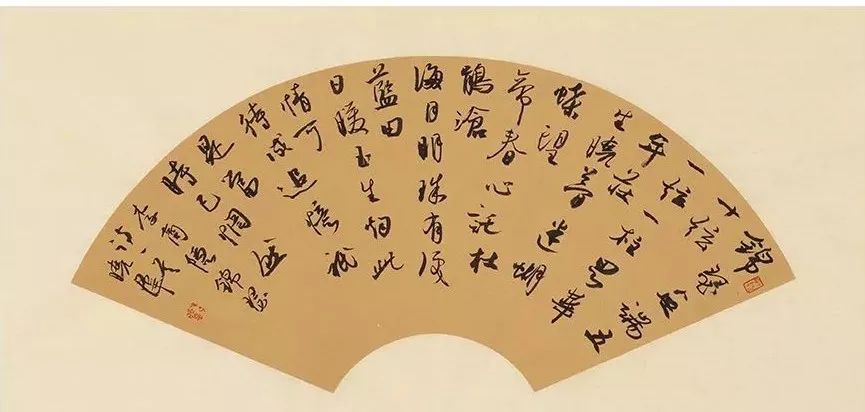 錦瑟無端五
十弦
一弦一柱思華
年莊
生曉夢迷蝴
蝶望
帝春心託杜
鵑滄
海月明珠有淚
藍田
日暖玉生煙此
情可
待成追憶祇
是當
時已惘然錦瑟
李商隱
詩